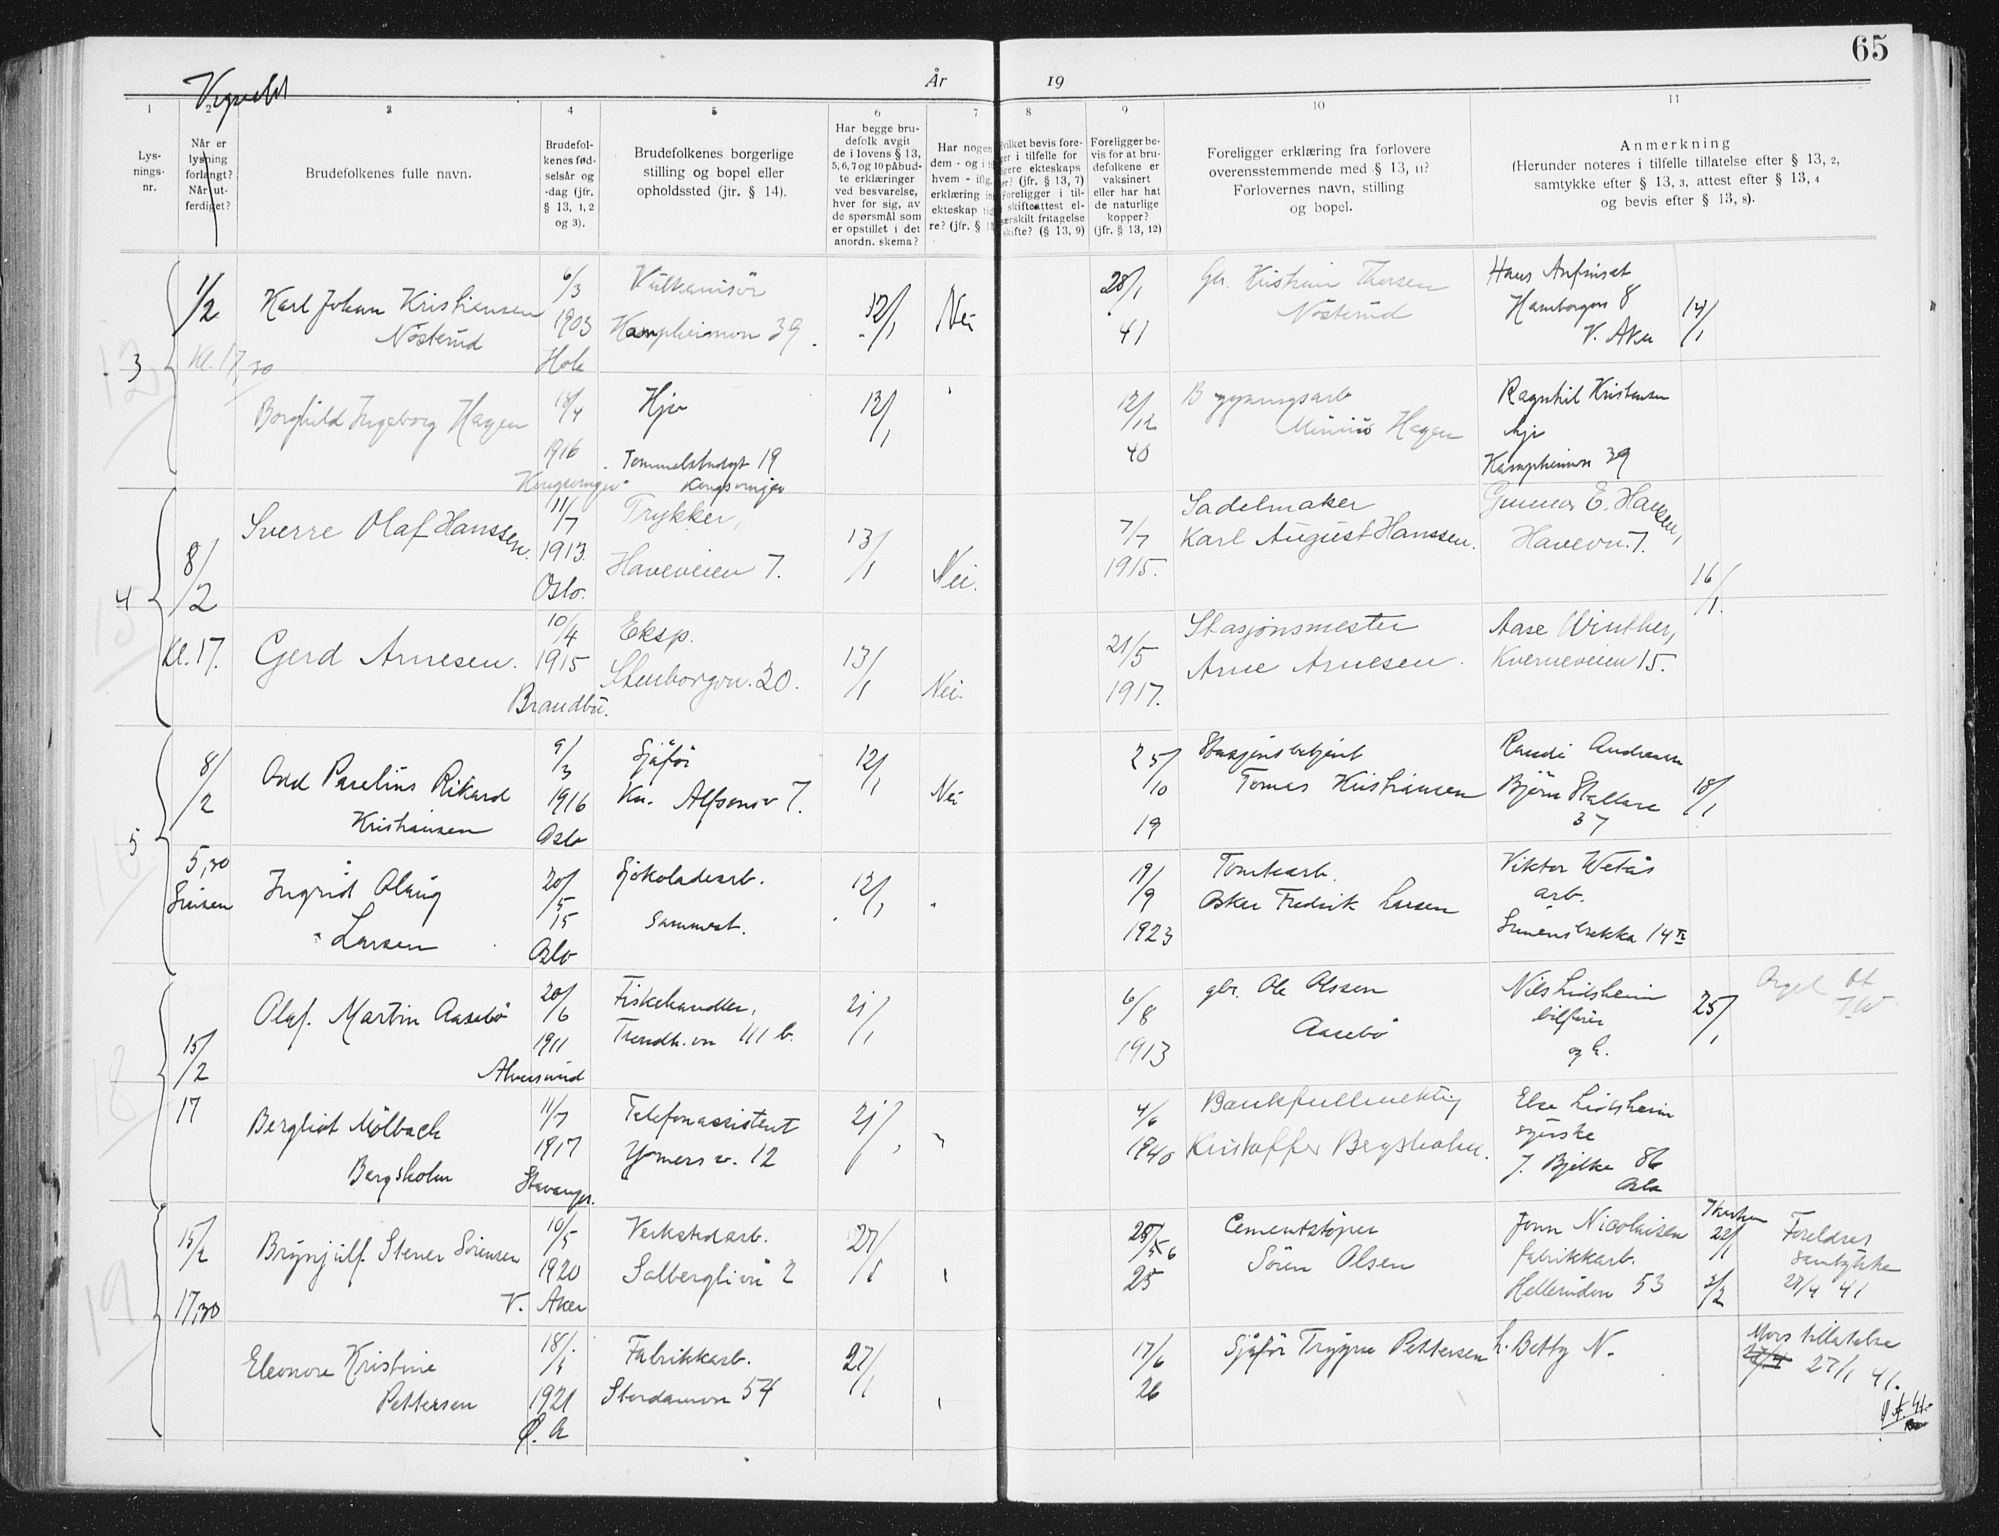 65
Vigsels
År
19
1
2
3
4
5
6
7
8
9
10
11
Lys-
nings-
nr.
Når er
lysning
forlangt?
Når ut-
ferdiget?
Brudefolkenes fulle navn.
Brudefol-
kenes fød-
selsår og
-dag (jfr.
§ 13, 1, 2
og 3).
Brudefolkenes borgerlige
stilling og bopel eller
opholdssted (jtr. § 14).
Har begge bru-
defolk avgit
de i lovens § 13,
5, 6, 7 og 10 påbud-
te erklæringer
ved besvarelse,
hver for sig, av
de spørsmål som
er opstillet i det
anordn. skema?
Har nogen
dem - og i
hvem - iflg.
erklæring in
ekteskap tid
re? (jfr. § 1
ilket bevis fore-
er i tilfelle for
gere ekteskaps
er? (jfr. § 13, 7)
Foreligger i til-
skifteattest el-
særskilt fritagelse
skifte? (§ 13, 9)
Foreligger be-
vis for at bru-
defolkene er
vaksinert
eller har hat
de naturlige
kopper?
(jfr. § 13, 12)
Foreligger erklæring fra forlovere
overensstemmende med § 13, 11?
Forlovernes navn, stilling
og bopel.
Anmerkning
(Herunder noteres i tilfelle tillatelse efter § 13, 2,
samtykke efter § 13, 3, attest efter § 13, 4
og bevis efter § 13, 8).
3
12
1/2
Kl. 17,30
Karl Johan Kristiansen
Nøsterud
6/3
1903
Hole
Vulkanisör
Kampheimvn 39.
12/1
Nei
28/1
41
Gbr. Kristian Thorsen
Nøsterud
Hans
Hamborgvn 8
V. Aker
14/1
Borghild Ingeborg Hagen
1916
Kongsvinger
Hjv
19
Kongsvinger
13/1
12/12
40
Bygningsarb
Hagen
Ragnhil Kristiansen
hjv
Kampheimvn 39
4
15
8/2
Kl. 17.
Sverre Olaf Hanssen.
11/7
1913.
Oslo.
Trykker,
Haveveien 7.
13/1
Nei.
7/7
1915.
Sadelmaker
Karl August Hanssen.
Gunnar E. Hansen,
Havevn. 7.
16/1.
Gerd Arnesen.
10/4
1915
Brandbu.
Eksp.
Stenborgvn. 20.
13/1
Nei.
21/5
1917.
Stasjonsmester
Arne Arnesen.
Aase Winther,
Kverneveien 15.
5
16
8/2
5,30
Sinsen
Odd Paulius Rikard
Kristiansen
9/3
1916
Oslo
Sjåför
Kn. Alfsensv 7.
12/1
Nei
25/10
19
Stasjonsbetjent
Tomas Kristiansen
Randi Andresen
Björn Stallare
37
18/1
Ingrid Olaug
Larsen
20/5
15
Oslo
Sjokoladearb.
sammest.
12/1
19/9
1923
Tomtearb.
Oskar Fredrik Larsen
Viktor Wetås
arb.
Simensbrekka 14 IV
18
15/2
17
Olaf. Martin Aasebö
20/6
1911
Alversund
Fiskehandler,
Trondh.vn 111 b.
21/1
6/8
1913
gbr. Ole Olssen
Aasebö
Nils Lidsheim
bilfører
og h.
25/1
Orgel
Bergliot Mølbach
Bergsholm
11/7
1917
Stavanger.
Telefonassistent
Ymersv. 12
21/1
4/6
1940
Bankfullmektig
Kristoffer Bergsholm.
Else Lidsheim
syerske
J. Bjelke 86
Oslo
19
15/2
17,30
Brynjulf Stener Sörensen
10/5
1920
V. Aker
Verkstedarb.
Solberglivn 2
27/1
25
Cementstöper
Sören Olsen
Jonn Nicolaisen
fabrikkarb.
Hellerudvn 53
22/1
3/2
Foreldres
samtykke
27/4 41
Eleonore Kristine
Pettersen
18/1
1921
Ø. A
Fabrikkarb.
Stordamvn 54
27/1
17/6
26
Sjåför Trygve Pettersen
h. Betty N.
Mors tillatelse
27/1 41.